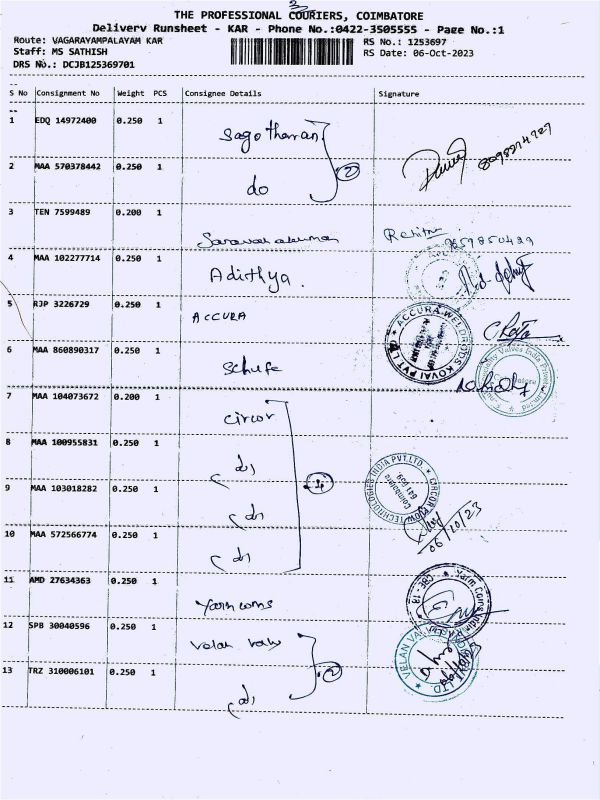 3
THE PROFESSIONAL COURIERS, COIMBATORE
Delivery Runsheet - KAR - Phone No.:0422-3505555 - Page No.:1
Route: VAGARAYAMPALAYAM KAR RS No.: 1253697
Staff: MS SATHISH RS Date: 06-Oct-2023
DRS No.: DCJB125369701
S No Consignment No Weight PCS Consignee Details Signature
1 EDQ 14972400 0.250 1
2 MAA 570378442 0.250 1 do 2
3 TEN 7599489 0.200 1
4 MAA 102277714 0.250 1 Adithya.
5 RJP 3226729 0.250 1 ACCURA
ACCURA WELDRODS KOVAI PVT LTD
6 MAA 860890317 0.250 1
7 MAA 104073672 0.200 1 circor
8 MAA 100955831 0.250 1
9 MAA 103018282 0.250 1 4
CIRCOR FLOW TECHNOLOGIES INDIA PVT.LTD.
Coimbatore
641 659.
10 MAA 572566774 0.250 1
06/10/23
11 AMD 27634363 0.250 1
CBE - 13
12 SPB 30040596 0.250 1 velan valv
13 TRZ 310006101 0.250 1 2